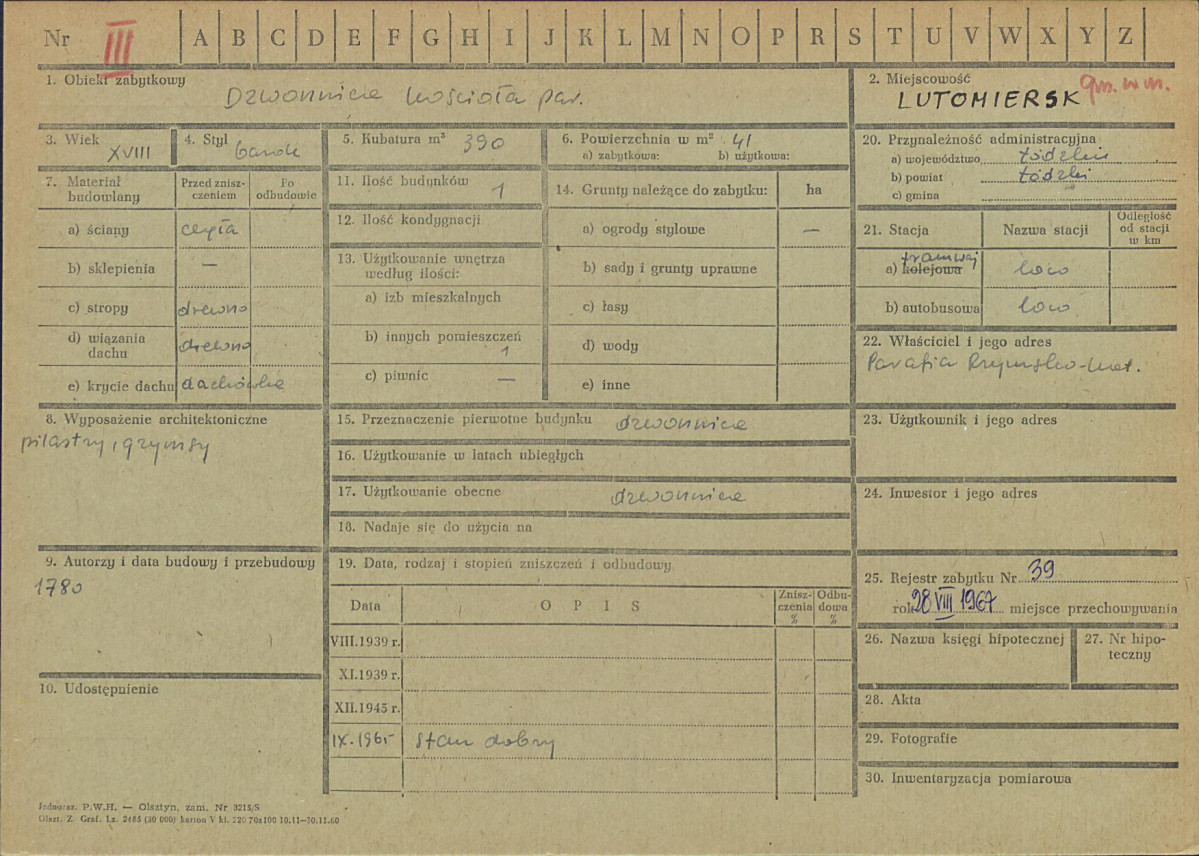 Nr III A B C D E F G H I J K L M N O P R S T U V W X Y Z
1. Obiekt zabytkowy
Dzwonnica kościoła par.
2. Miejscowość gm. w m.
LUTOMIERSK
3. Wiek
XVIII
4. Styl
barok
5. Kubatura m³ 390
6. Powierzchnia w m² 41
a) zabytkowa: b) użytkowa:
7. Materiał budowlany
Przed zniszczeniem
Po odbudowie
a) ściany cegła
b) sklepienia —
c) stropy drewno
d) wiązania dachu drewno
e) krycie dachu dachówka
8. Wyposażenie architektoniczne
pilastry, gzymsy
9. Autorzy i data budowy i przebudowy
1780
10. Udostępnienie
11. Ilość budynków 1
12. Ilość kondygnacji
13. Użytkowanie wnętrza
według ilości:
a) izb mieszkalnych
b) innych pomieszczeń
1
c) piwnic —
14. Grunty należące do zabytku: ha
a) ogrody stylowe —
b) sady i grunty uprawne
c) łasy
d) wody
e) inne
15. Przeznaczenie pierwotne budynku dzwonnica
16. Użytkowanie w latach ubiegłych
17. Użytkowanie obecne dzwonnica
18. Nadaje się do użycia na
19. Data, rodzaj i stopień zniszczeń i odbudowy
Data O P I S Zniszczenia % Odbudowa %
VIII.1939 r.
XI.1939 r.
XII.1945 r.
IX.1965 stan dobry
20. Przynależność administracyjna
a) województwo łódzkie
b) powiat Łódzki
c) gmina
21. Stacja Nazwa stacji Odległość od stacji w km
tramwaj
a) kolejowa loco
b) autobusowa loco
22. Właściciel i jego adres
Parafia Rzymsko-kat.
23. Użytkownik i jego adres
24. Inwestor i jego adres
25. Rejestr zabytku Nr 39
rok 28 VIII 1967 miejsce przechowywania
26. Nazwa księgi hipotecznej
27. Nr hipoteczny
28. Akta
29. Fotografie
30. Inwentaryzacja pomiarowa
Jednoraz. P.W.H. — Olsztyn, zam. Nr 3215/S
Olszt. Z. Graf. Lz. 2485 (30 000) karton V kl. 220 70x100 10.11—30.11.60